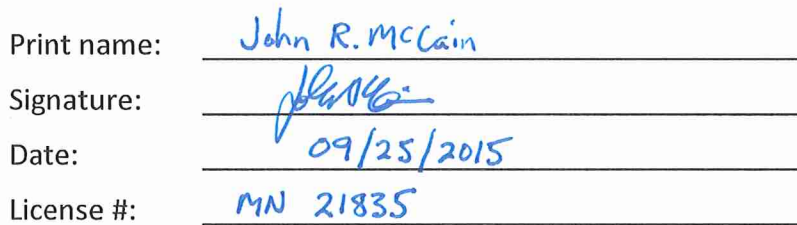 Print name: John R. McCain
Signature:
Date: 09/25/2015
License #: MN 21835